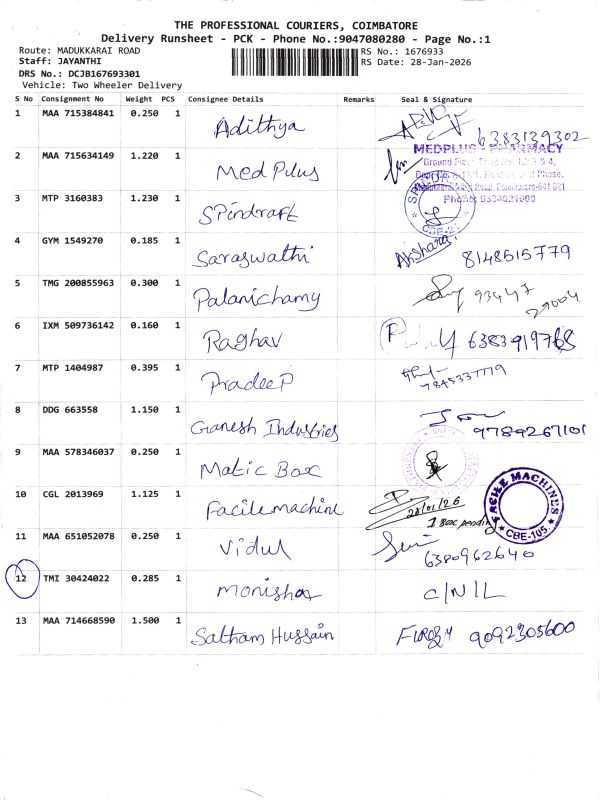 THE PROFESSIONAL COURIERS, COIMBATORE
Delivery Runsheet - PCK - Phone No.:9047080280 - Page No.:1
Route: MADUKKARAI ROAD
RS No.: 1676933
Staff: JAYANTHI
RS Date: 28-Jan-2026
DRS No.: DCJB167693301
Vehicle: Two Wheeler Delivery
S No Consignment No Weight PCS Consignee Details Remarks Seal & Signature
1 MAA 715384841 0.250 1 Adithya 6383139302
2 MAA 715634149 1.220 1 Med Plus
MEDPLUS PHARMACY
3 MTP 3160383 1.230 1 Spindraft
CBE-21
4 GYM 1549270 0.185 1 Saraswathi Akshara 8148515779
5 TMG 200855963 0.300 1 Palanichamy 93447 29004
6 IXM 509736142 0.160 1 Raghav 6383919768
7 MTP 1404987 0.395 1 Pradeep 7845337779
8 DDG 663558 1.150 1 Ganesh Industries 9789267101
9 MAA 578346037 0.250 1 Matic Box
10 CGL 2013969 1.125 1 Facilemachine 28/01/26
1 Box pending
FACILE MACHINES
CBE-105.
11 MAA 651052078 0.250 1 Vidul 6380962640
12 TMI 30424022 0.285 1 Monisha C/N/L
13 MAA 714668590 1.500 1 Satham Hussain 9092305600